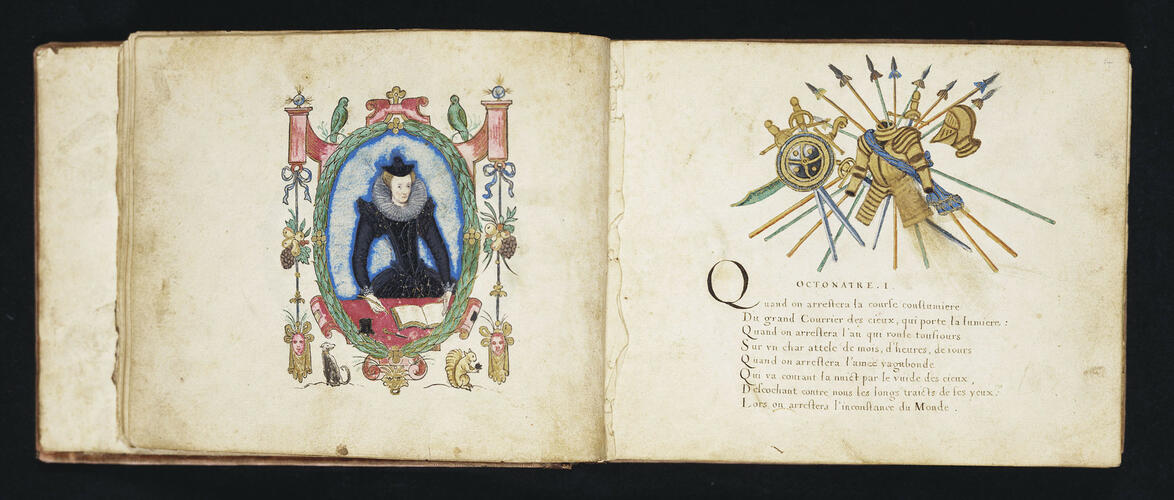 OCTONAIRE . I .
Quand on arreſtera la courſe couſtumiere
Du grand Courrier des cieux, qui porte la lumiere :
Quand on arreſtera l'an qui roule touſiours
Sur vn char attelé de mois, d'heures, de iours
Quand on arreſtera l'armee vagabonde
Qui va courant la nuict par le vuide des cieux,
Deſcochant contre nous les longs traicts de ſes yeux:
Lors on arreſtera l'inconſtance du Monde .